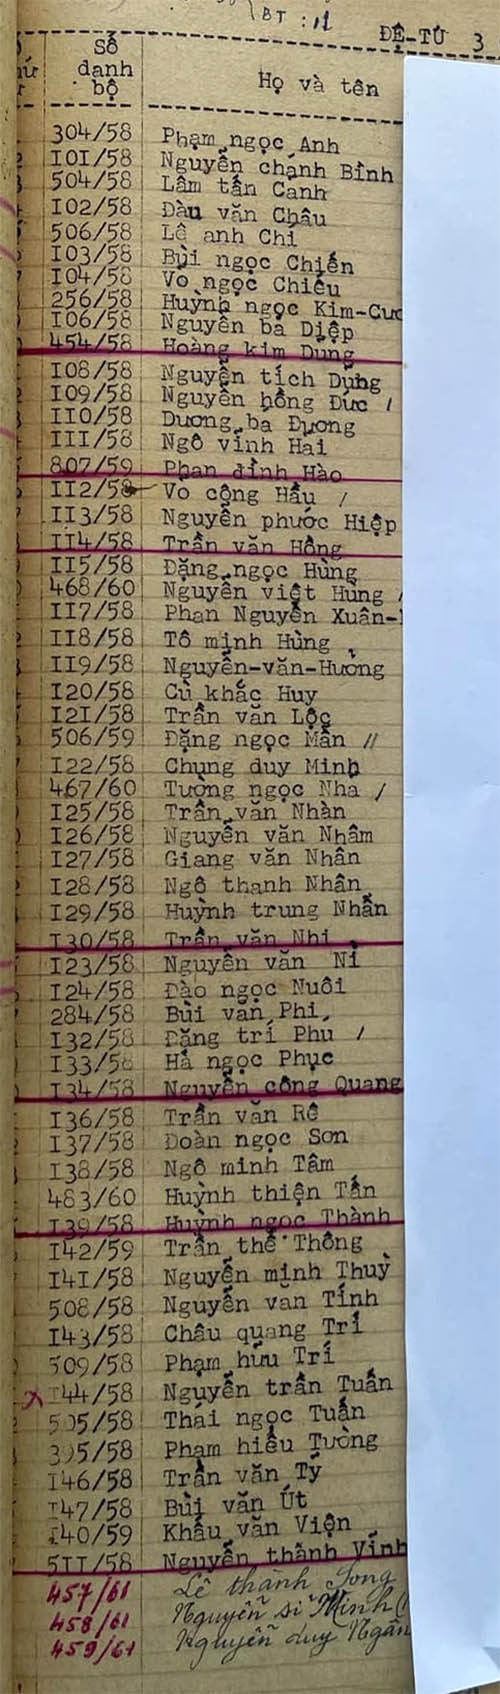 BT : 11
ĐỆ-TỨ 3
Số
danh
bộ
Họ và tên
304/58 Phạm ngọc Anh
I0I/58 Nguyễn chánh Bỉnh
504/58 Lâm tấn Canh
I02/58 Đàu văn Châu
506/58 Lê anh Chi
I03/58 Bùi ngọc Chiến
I04/58 Võ ngọc Chiếu
256/58 Huỳnh ngọc Kim-Cươ
I06/58 Nguyễn bá Diệp
454/58 Hoàng kim Dung
I08/58 Nguyễn tích Dụng
I09/58 Nguyễn hồng Đức /
II0/58 Dương bá Đương
III/58 Ngô vĩnh Hai
807/59 Phan đình Hào
II2/58 Võ công Hầu /
II3/58 Nguyễn phước Hiệp
II4/58 Trần văn Hồng
II5/58 Đặng ngọc Hùng
468/60 Nguyễn việt Hùng /
II7/58 Phan Nguyễn Xuân-
II8/58 Tô minh Hùng
II9/58 Nguyễn-văn-Hưởng
I20/58 Cù khắc Huy
I2I/58 Trần văn Lộc
506/59 Đặng ngọc Mẫn //
I22/58 Chung duy Minh
467/60 Tường ngọc Nha /
I25/58 Trần văn Nhàn
I26/58 Nguyễn văn Nhâm
I27/58 Giang văn Nhân
I28/58 Ngô thanh Nhân
I29/58 Huỳnh trung Nhẫn
I30/58 Trần văn Nhi
I23/58 Nguyễn văn Nỉ
I24/58 Đào ngọc Nuôi
284/58 Bùi văn Phi
I32/58 Đặng trí Phu /
I33/58 Hà ngọc Phục
I34/58 Nguyễn công Quang
I36/58 Trần văn Rê
I37/58 Đoàn ngọc Sơn
I38/58 Ngô minh Tâm
483/60 Huỳnh thiện Tấn
I39/58 Huỳnh ngọc Thành
I42/59 Trần thế Thông
I4I/58 Nguyễn minh Thuỳ
508/58 Nguyễn văn Tính
I43/58 Châu quang Trí
509/58 Phạm hữu Trí
I44/58 Nguyễn trần Tuấn
505/58 Thái ngọc Tuấn
395/58 Phạm hiếu Tường
I46/58 Trần văn Tý
I47/58 Bùi văn Út
I40/59 Khấu văn Viện
5II/58 Nguyễn thành Vinh
457/61 Lê thành Song
458/61 Nguyễn sĩ Minh
459/61 Nguyễn duy Ngân